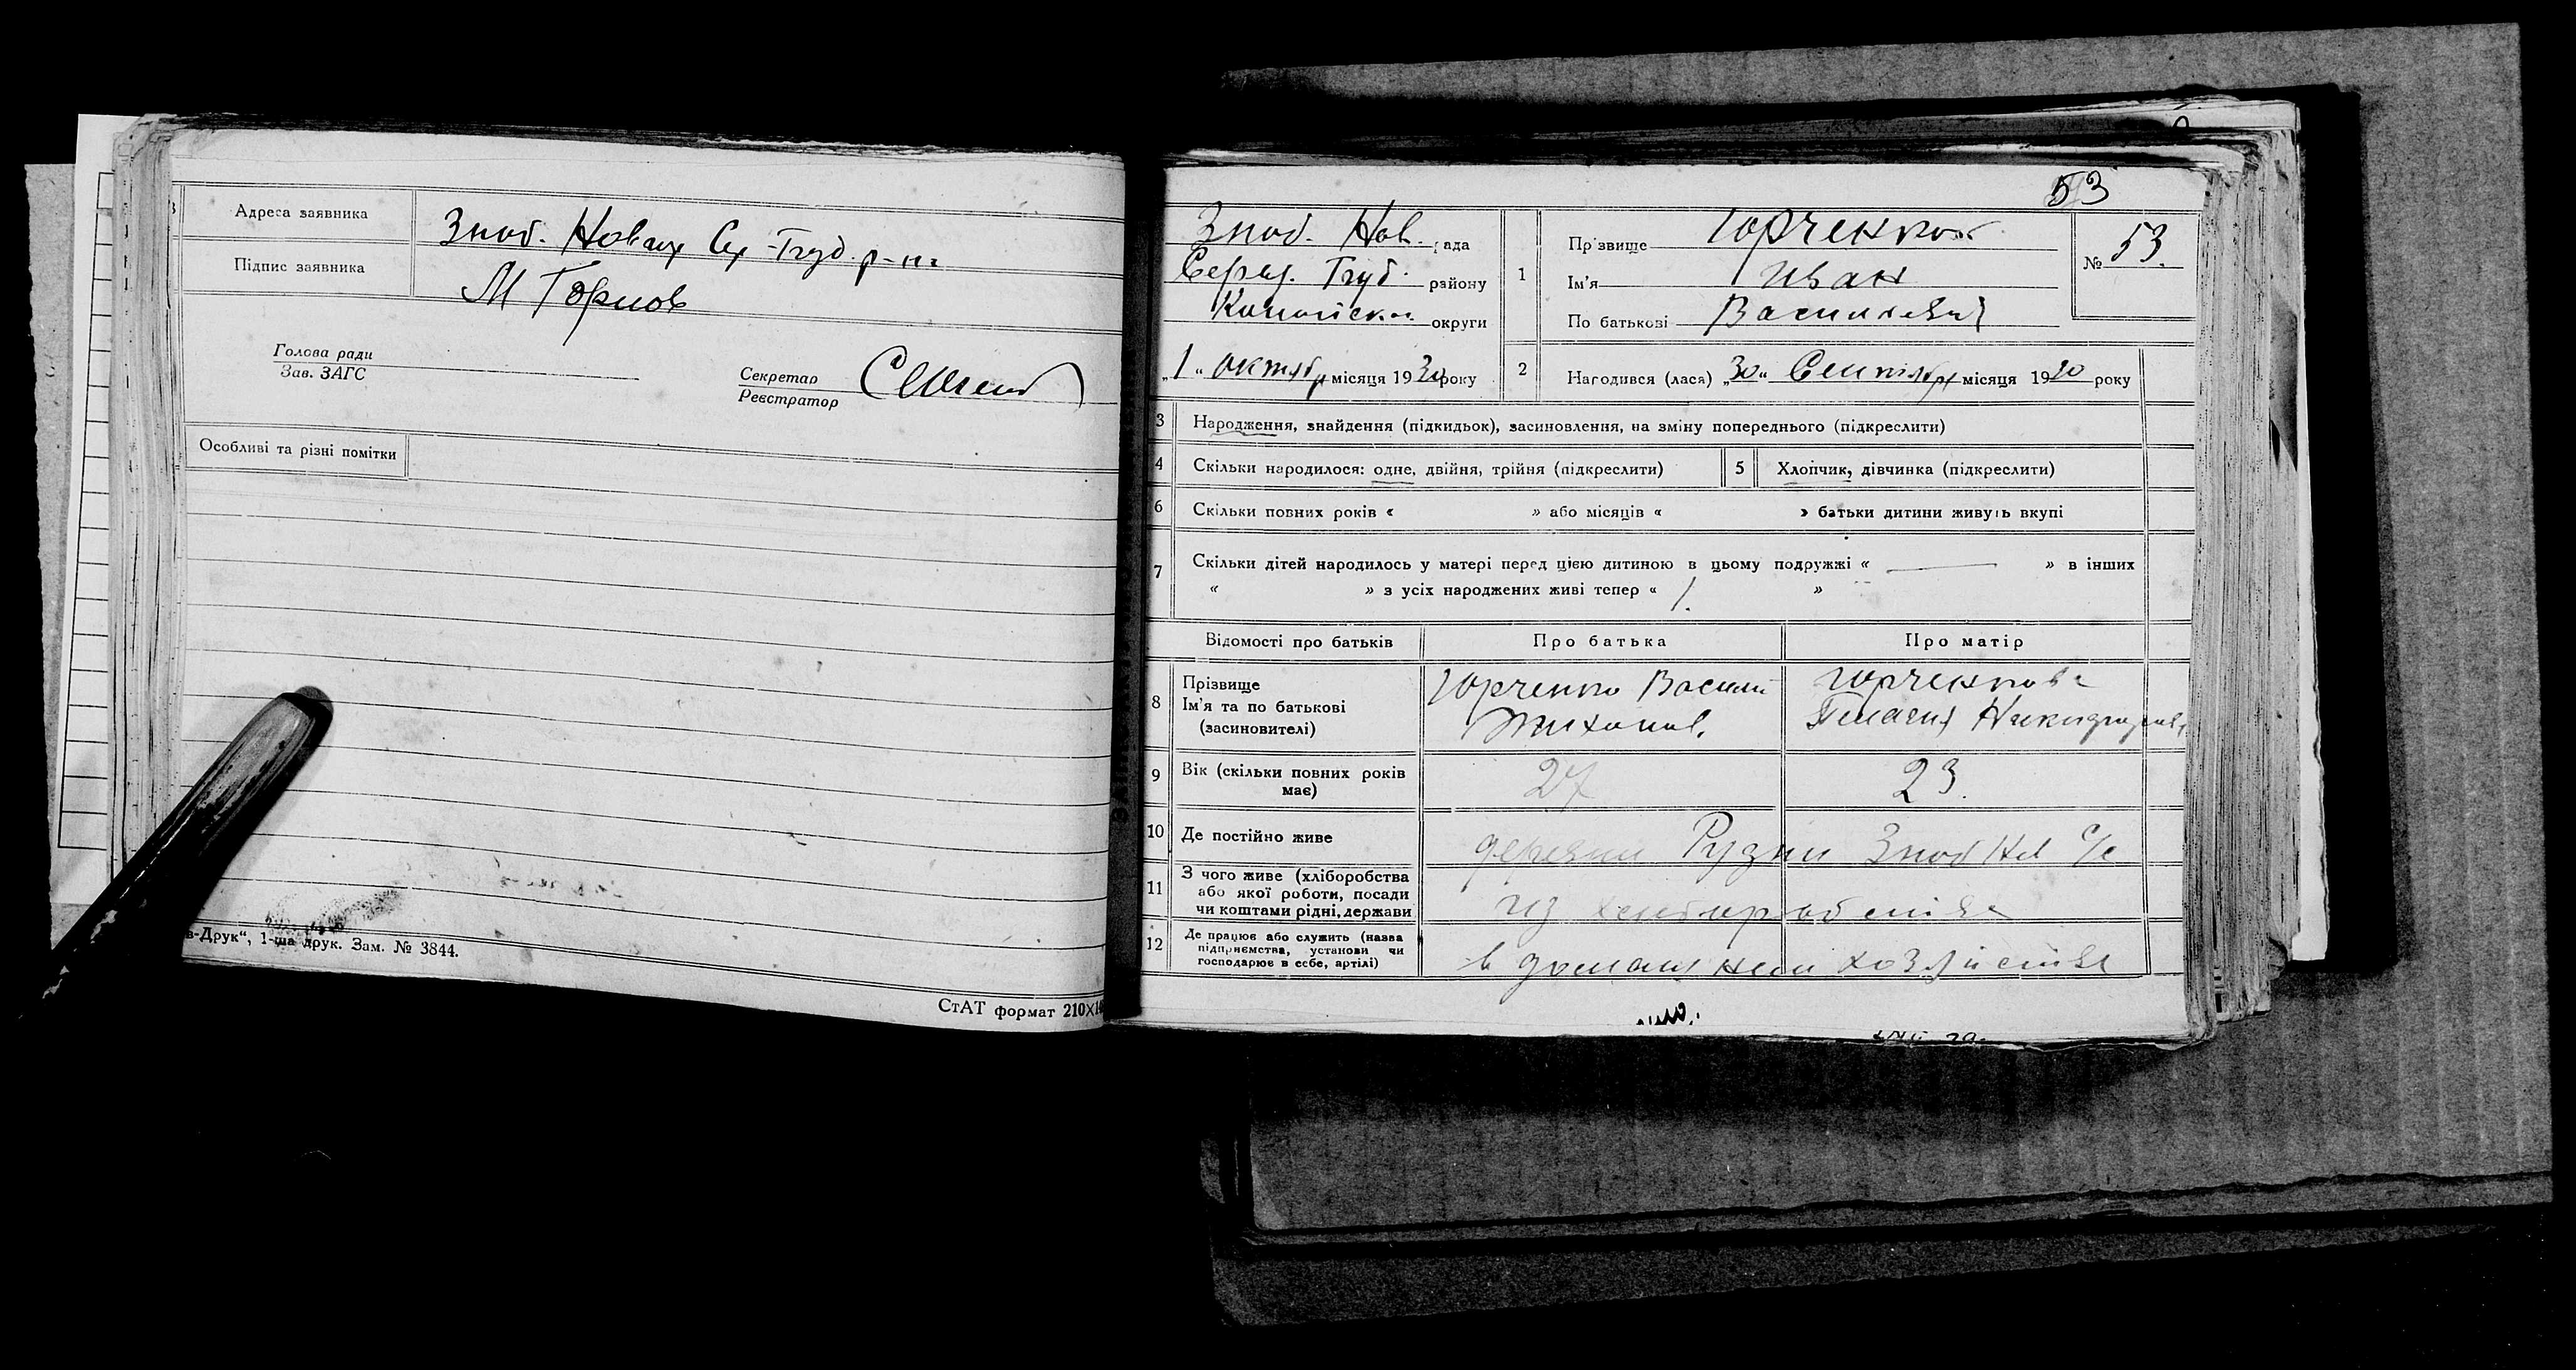 Адреса заявника Зноб. Новгор Се-Буд. р-на
Підпис заявника М Горнов
Голова ради
Зав. ЗАГС
Секретар
Реєстратор
Особливі та різні помітки
в-Друк“, 1-ша друк. Зам. № 3844.
СтАТ формат 210×14
53
Зноб. Нов. рада
Серед. Буд. району
округи
„1“ октябр місяця 1930 року
1
Прізвище Юрченков
Ім'я Иван
По батькові Васильевич
№ 53.
2 Народився (лася) „30“ Сентября місяця 1930 року
3 Народження, знайдення (підкидьок), засиновлення, на зміну попереднього (підкреслити)
4 Скільки народилося: одне, двійня, трійня (підкреслити) 5 Хлопчик, дівчинка (підкреслити)
6 Скільки повних років « » або місяців « » батьки дитини живуть вкупі
7 Скільки дітей народилось у матері перед цією дитиною в цьому подружжі « — » в інших
« » з усіх народжених живі тепер « 1. »
Відомості про батьків Про батька Про матір
8 Прізвище
Ім'я та по батькові
(засиновителі)
Юрченко Васили
Тихонов.
Юрченкова
Пелагия Никифоровна
9 Вік (скільки повних років має) 27 23.
10 Де постійно живе деревни Рудни Зноб Нов С/с
11 З чого живе (хліборобства
або якої роботи, посади
чи коштами рідні, держави
из хлеборобства
12 Де працює або служить (назва
підприємства, установи чи
господарює в себе, артілі)
в домашнем хозяйстве